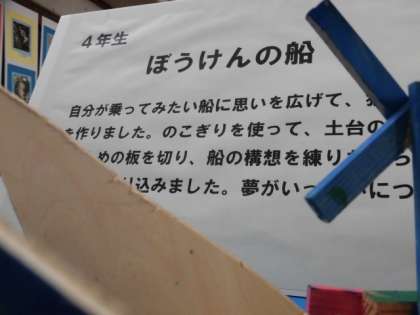 4年生
ぼうけんの船
自分が乗ってみたい船に思いを広げて、
を作りました。のこぎりを使って、土台の
めの板を切り、船の構想を練り
り込みました。夢がいっ
につ